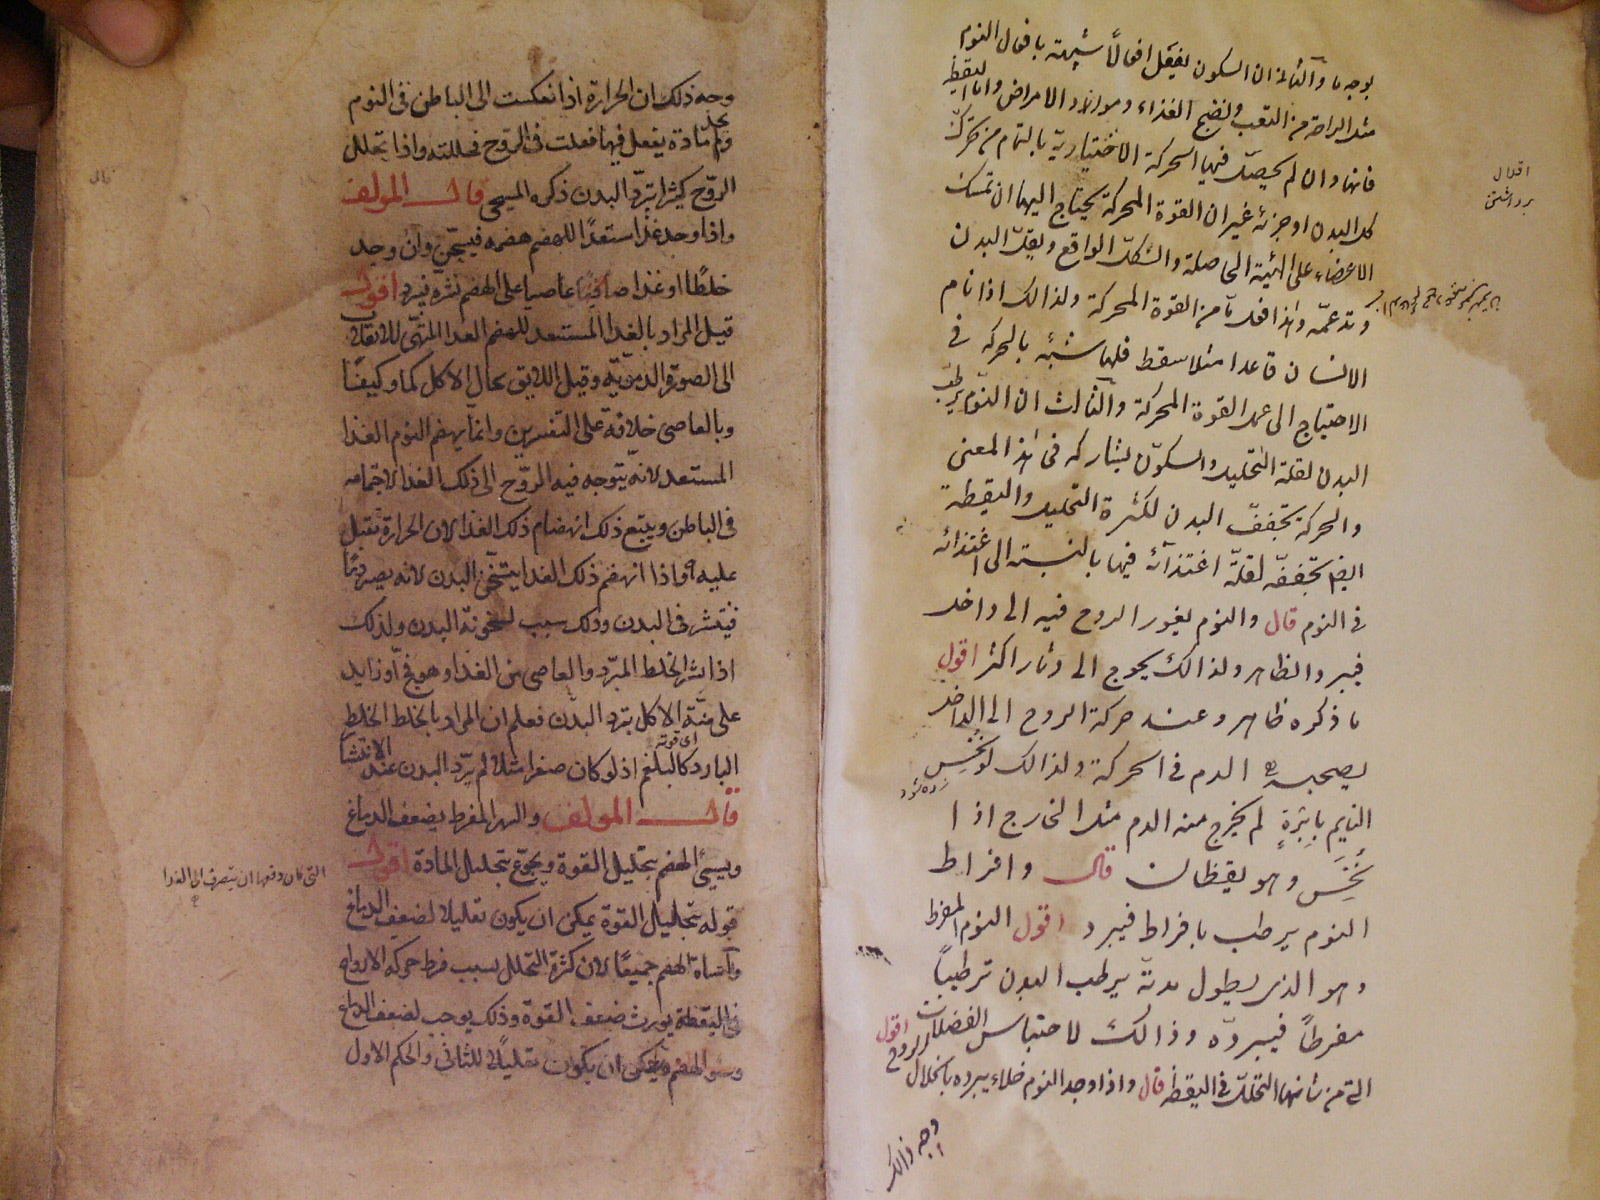 بوجه ما والثانية ان السكون يفعل افعالا شبيهة بافعال النوم
مثل الراحة من التعب ونضج الغذاء ومواد الامراض واما اليقظة
فانها وان لم يحصل فيها الحركة الاختيارية بالتمام من تحرك
كل البدن او جزئه غير ان القوة المحركة يحتاج اليها ان تمسك
الاعضاء على الهيئة الحاصلة والشكل الواقع ويقل البدن
وتدعمه وهذا فعل ما من القوة المحركة ولذالك اذا نام
الانسان قاعدا مثلا سقط فلها شبه بالحركة فى
الاحتياج الى عمل القوة المحركة والثالث ان النوم يرطب
البدن لقلة التحليل والسكون يشاركه فى هذا المعنى
والحركة تجفف البدن لكثرة التحليل واليقظة
ايضا تجففه لقلة اغتذائه فيها بالنسبة الى اغتذائه
فى النوم قال والنوم يغور الروح فيه الى داخل
فيبرد الظاهر ولذالك يحوج الى دثار اكثر اقول
ما ذكره ظاهر وعند حركة الروح الى الداخل
يصحبه الدم فى الحركة ولذالك لو نخس
النايم بابرة لم يخرج منه الدم مثل الخارج اذا
نخس وهو يقظان قال وافراط
النوم يرطب بافراط فيبرد اقول النوم المفرط
وهو الذى يطول مدته يرطب البدن ترطيبا
مفرطا فيبرده وذالك لاحتباس الفضلات
التى من شانها التحلل فى اليقظة قال واذا وجد النوم خلاء يبرده بانحلال الروح اقول
وجه ذالك
اقلال
برداشتن
وجه ذلك ان الحرارة اذا نعكست الى الباطن فى النوم
ولم يجد مادة يفعل فيها فعلت فى الروح فحللته واذا تحلل
الروح كثيرا تبرد البدن ذكره المسيحى قال المولف
واذا وجد غذا مستعدا للهضم هضمه فيسخن وان وجد
خلطا او غذا عاصيا على الهضم نثره فيبرد اقول
قيل المراد بالغذا المستعد للهضم الغذا المتهيى للانقلاب
الى الصورة الدموية وقيل اللايق بحال الاكل كما وكيفا
وبالعاصى خلافه على التفسيرين وانما يهضم النوم الغذا
المستعد لانه يتوجه فيه الروح الى ذلك الغذا لاجتماعه
فى الباطن ويتبع ذلك انهضام ذلك الغذا لان الحرارة تقبل
عليه واذا انهضم ذلك الغذا يتسخن البدن لانه يصير دما
فينتشر فى البدن وذلك سبب لسخونة البدن ولذلك
اذا نثر الخلط المبرد والعاصى من الغذا وهو فج او زايد
على منة الاكل تبرد البدن فعلم ان المراد بالخلط الخلط
اى قوته
البارد كالبلغم اذ لو كان صفرا مثلا لم يبرد البدن عند الانتشا
قال المولف والسهر المفرط يضعف الدماغ
ويسيئ الهضم بتحليل القوة ويجوع بتحليل المادة اقول
قوله بتحليل القوة يمكن ان يكون تعليلا لضعف الدماغ
واساة الهضم جميعا لان كثرة التحلل بسبب فرط حركة الارواح
فى اليقظة يورث ضعف القوة وذلك يوجب لضعف الدماغ
وسو الهضم ويمكن ان يكون تعليلا للثانى والحكم الاول
قال